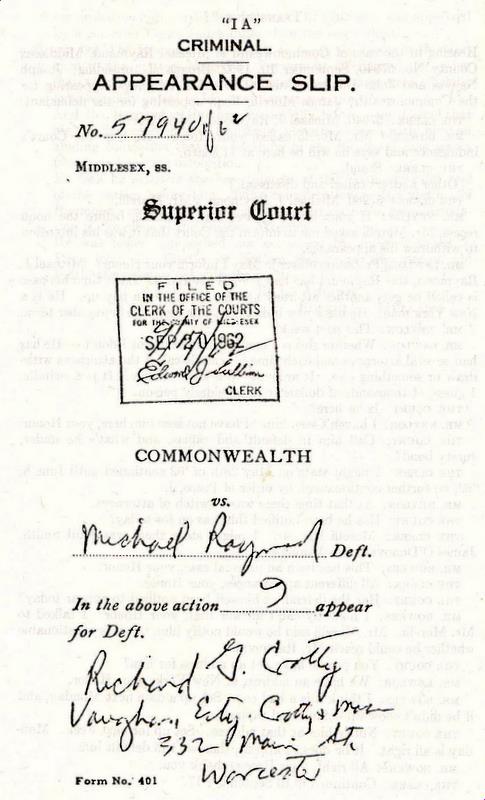 "IA"
CRIMINAL.
APPEARANCE SLIP.
No. 57940
MIDDLESEX, SS.
Superior Court
FILED
IN THE OFFICE OF THE
CLERK OF THE COURTS
FOR THE COUNTY OF MIDDLESEX
SEP 20 1962
Edward J. Sullivan
CLERK
COMMONWEALTH
vs.
Michael Raymond Deft.
In the above action I appear
for Deft.
Richard G. Crotty
Vaughan, Esty, Crotty &
332 Main St
Worcester
Form No. 401